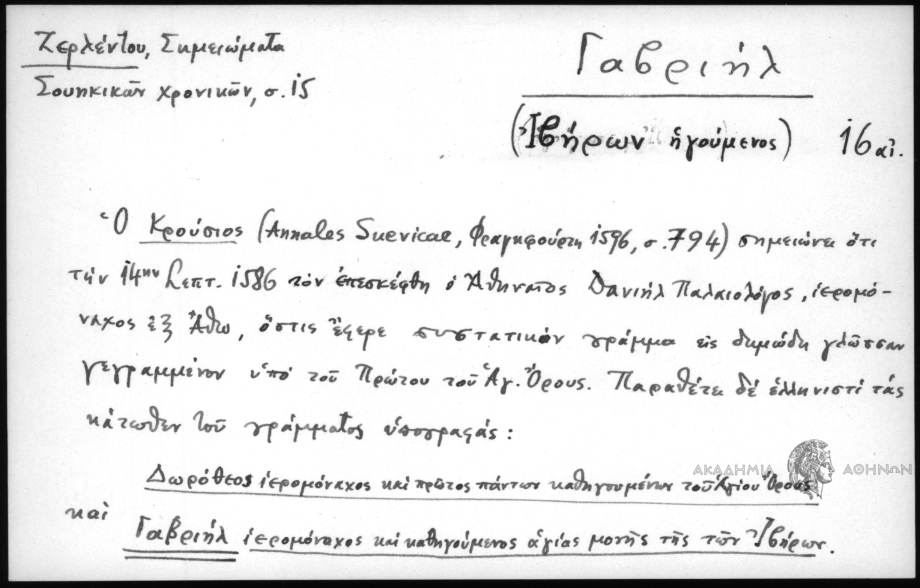 Ζερλέντου, Σημειώματα
Σουηκικῶν χρονικῶν, σ. 15
Γαβριήλ
(Ἰβήρων ἡγούμενος) 16 αἰ.
Ὁ Κρούσιος (Annales Suevicae, Φραγκφούρτη 1596, σ. 794) σημειώνει ὅτι
τὴν 14ην Σεπτ. 1586 τὸν ἐπεσκέφθη ὁ Ἀθηναῖος Δανιὴλ Παλαιολόγος, ἱερομό-
ναχος ἐξ Ἄθω, ὅστις ἔφερε συστατικὸν γράμμα εἰς δημώδη γλῶσσαν
γεγραμμένον ὑπὸ τοῦ Πρώτου τοῦ Ἁγ. Ὄρους. Παραθέτει δὲ ἑλληνιστὶ τὰς
κάτωθεν τοῦ γράμματος ὑπογραφάς:
ΑΚΑΔΗΜΙΑ ΑΘΗΝΩΝ
Δωρόθεος ἱερομόναχος καὶ πρῶτος πάντων καθηγουμένων τοῦ Ἁγίου Ὄρους
καὶ
Γαβριὴλ ἱερομόναχος καὶ καθηγούμενος ἁγίας μονῆς τῆς τῶν Ἰβήρων.